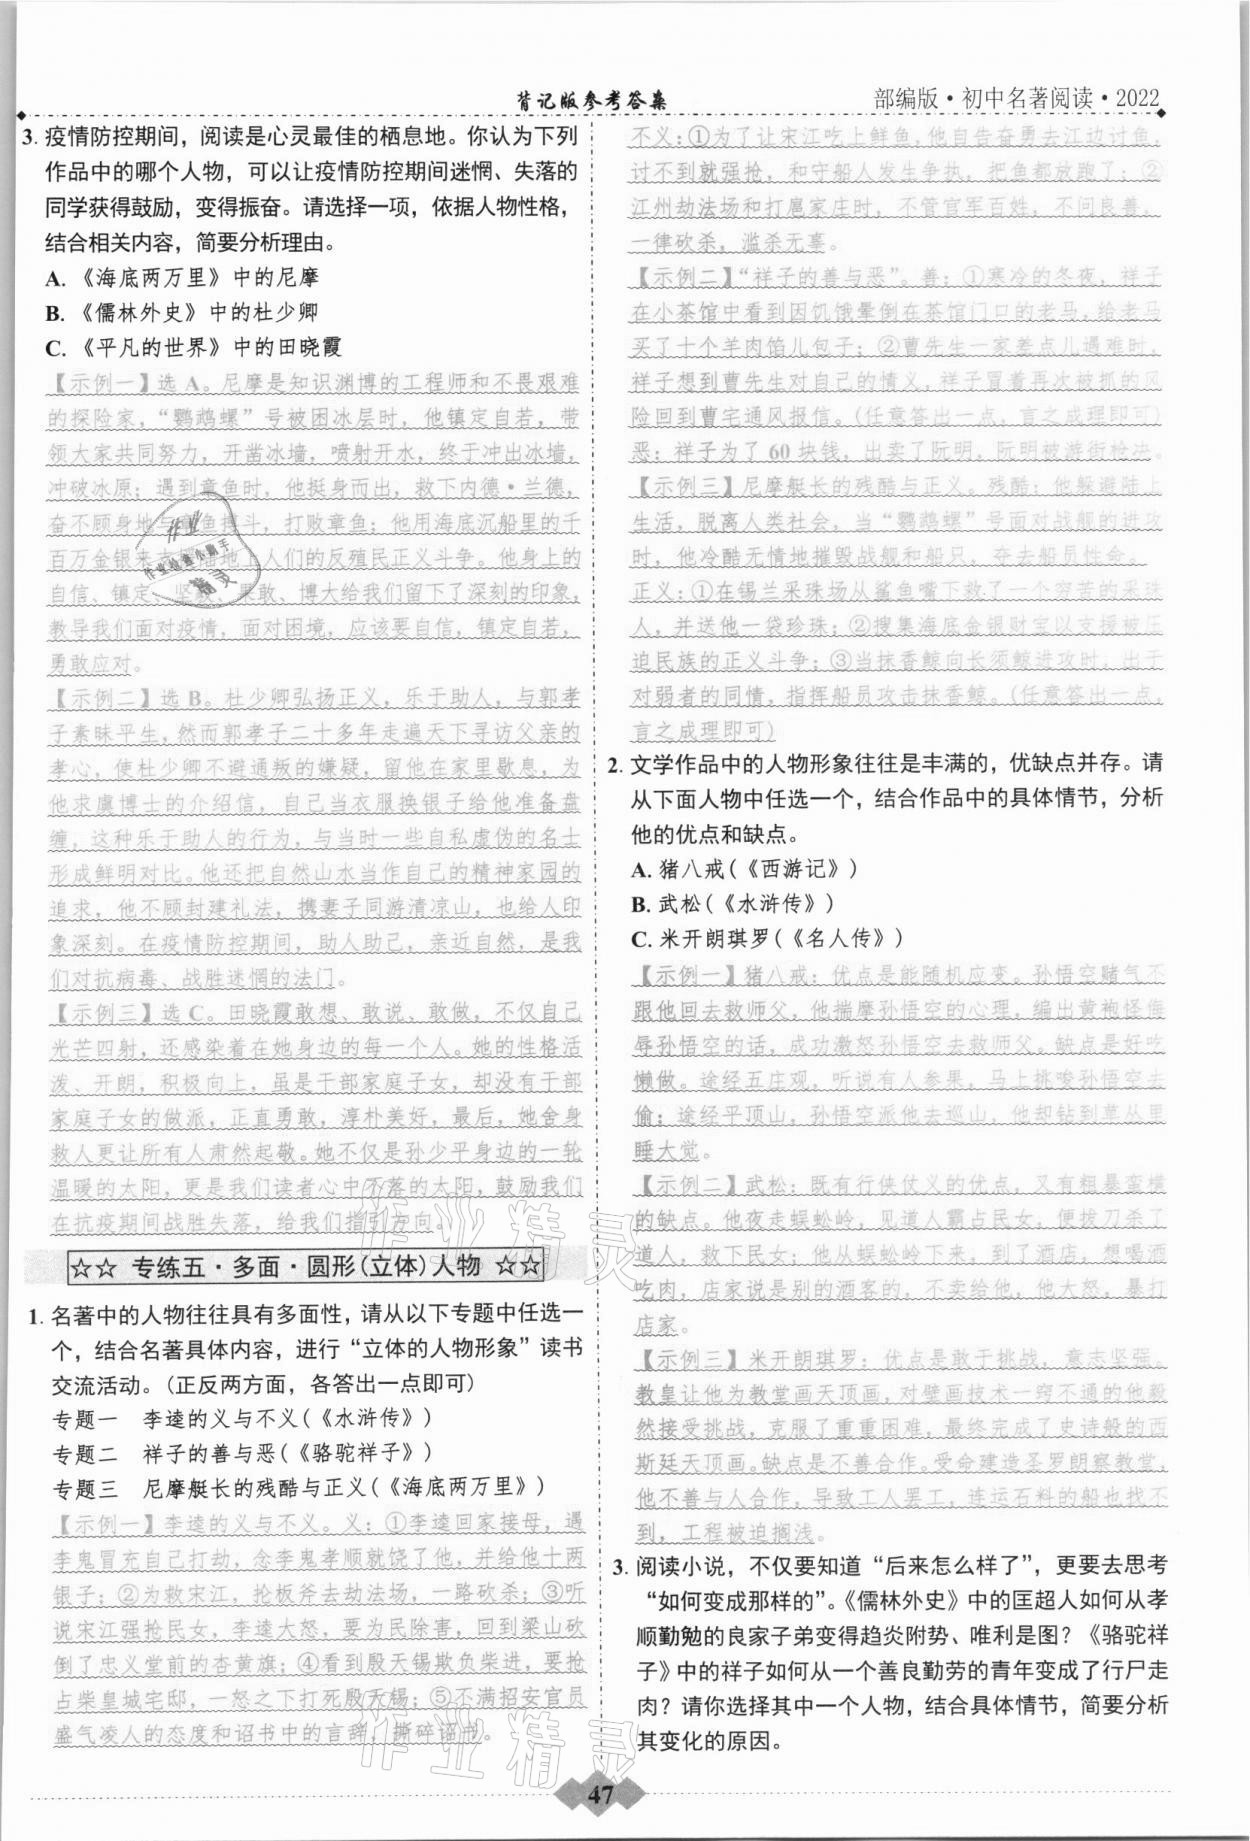 背记版参考答案
部编版·初中名著阅读·2022
3. 疫情防控期间，阅读是心灵最佳的栖息地。你认为下列
作品中的哪个人物，可以让疫情防控期间迷惘、失落的
同学获得鼓励，变得振奋。请选择一项，依据人物性格，
结合相关内容，简要分析理由。
A.《海底两万里》中的尼摩
B.《儒林外史》中的杜少卿
C.《平凡的世界》中的田晓霞
【示例一】选 A。尼摩是知识渊博的工程师和不畏艰难
的探险家，“鹦鹉螺”号被困冰层时，他镇定自若，带
领大家共同努力，开凿冰墙，喷射开水，终于冲出冰墙，
冲破冰原；遇到章鱼时，他挺身而出，救下内德·兰德，
奋不顾身地与章鱼搏斗，打败章鱼；他用海底沉船里的千
百万金银来支援陆地上人们的反殖民正义斗争。他身上的
自信、镇定、坚毅、果敢、博大给我们留下了深刻的印象，
教导我们面对疫情，面对困境，应该要自信，镇定自若，
勇敢应对。
【示例二】选 B。杜少卿弘扬正义，乐于助人，与郭孝
子素昧平生，然而郭孝子二十多年走遍天下寻访父亲的
孝心，使杜少卿不避通叛的嫌疑，留他在家里歇息，为
他求虞博士的介绍信，自己当衣服换银子给他准备盘
缠，这种乐于助人的行为，与当时一些自私虚伪的名士
形成鲜明对比。他还把自然山水当作自己的精神家园的
追求，他不顾封建礼法，携妻子同游清凉山，也给人印
象深刻。在疫情防控期间，助人助己，亲近自然，是我
们对抗病毒、战胜迷惘的法门。
【示例三】选 C。田晓霞敢想、敢说、敢做，不仅自己
光芒四射，还感染着在她身边的每一个人。她的性格活
泼、开朗，积极向上，虽是干部家庭子女，却没有干部
家庭子女的做派，正直勇敢，淳朴美好，最后，她舍身
救人更让所有人肃然起敬。她不仅是孙少平身边的一轮
温暖的太阳，更是我们读者心中不落的太阳，鼓励我们
在抗疫期间战胜失落，给我们指引方向。
☆☆ 专练五·多面·圆形(立体)人物 ☆☆
1. 名著中的人物往往具有多面性，请从以下专题中任选一
个，结合名著具体内容，进行“立体的人物形象”读书
交流活动。(正反两方面，各答出一点即可)
专题一 李逵的义与不义(《水浒传》)
专题二 祥子的善与恶(《骆驼祥子》)
专题三 尼摩艇长的残酷与正义(《海底两万里》)
【示例一】李逵的义与不义。义：①李逵回家接母，遇
李鬼冒充自己打劫，念李鬼孝顺就饶了他，并给他十两
银子；②为救宋江，抡板斧去劫法场，一路砍杀；③听
说宋江强抢民女，李逵大怒，要为民除害，回到梁山砍
倒了忠义堂前的杏黄旗；④看到殷天锡欺负柴进，要抢
占柴皇城宅邸，一怒之下打死殷天锡；⑤不满招安官员
盛气凌人的态度和诏书中的言辞，撕碎诏书。
不义：①为了让宋江吃上鲜鱼，他自告奋勇去江边讨鱼，
讨不到就强抢，和守船人发生争执，把鱼都放跑了；②
江州劫法场和打扈家庄时，不管官军百姓，不问良善，
一律砍杀，滥杀无辜。
【示例二】“祥子的善与恶”。善：①寒冷的冬夜，祥子
在小茶馆中看到因饥饿晕倒在茶馆门口的老马，给老马
买了十个羊肉馅儿包子；②曹先生一家差点儿遇难时，
祥子想到曹先生对自己的情义，祥子冒着再次被抓的风
险回到曹宅通风报信。(任意答出一点，言之成理即可)
恶：祥子为了 60 块钱，出卖了阮明，阮明被游街枪决。
【示例三】尼摩艇长的残酷与正义。残酷：他躲避陆上
生活，脱离人类社会，当“鹦鹉螺”号面对战舰的进攻
时，他冷酷无情地摧毁战舰和船只，夺去船员性命。
正义：①在锡兰采珠场从鲨鱼嘴下救了一个穷苦的采珠
人，并送他一袋珍珠；②搜集海底金银财宝以支援被压
迫民族的正义斗争；③当抹香鲸向长须鲸进攻时，出于
对弱者的同情，指挥船员攻击抹香鲸。(任意答出一点，
言之成理即可)
2. 文学作品中的人物形象往往是丰满的，优缺点并存。请
从下面人物中任选一个，结合作品中的具体情节，分析
他的优点和缺点。
A. 猪八戒(《西游记》)
B. 武松(《水浒传》)
C. 米开朗琪罗(《名人传》)
【示例一】猪八戒：优点是能随机应变。孙悟空赌气不
跟他回去救师父，他揣摩孙悟空的心理，编出黄袍怪侮
辱孙悟空的话，成功激怒孙悟空去救师父。缺点是好吃
懒做。途经五庄观，听说有人参果，马上挑唆孙悟空去
偷；途经平顶山，孙悟空派他去巡山，他却钻到草丛里
睡大觉。
【示例二】武松：既有行侠仗义的优点，又有粗暴蛮横
的缺点。他夜走蜈蚣岭，见道人霸占民女，便拔刀杀了
道人，救下民女；他从蜈蚣岭下来，到了酒店，想喝酒
吃肉，店家说是别的酒客的，不卖给他，他大怒，暴打
店家。
【示例三】米开朗琪罗：优点是敢于挑战，意志坚强。
教皇让他为教堂画天顶画，对壁画技术一窍不通的他毅
然接受挑战，克服了重重困难，最终完成了史诗般的西
斯廷天顶画。缺点是不善合作。受命建造圣罗朗察教堂，
他不善与人合作，导致工人罢工，连运石料的船也找不
到，工程被迫搁浅。
3. 阅读小说，不仅要知道“后来怎么样了”，更要去思考
“如何变成那样的”。《儒林外史》中的匡超人如何从孝
顺勤勉的良家子弟变得趋炎附势、唯利是图？《骆驼祥
子》中的祥子如何从一个善良勤劳的青年变成了行尸走
肉？请你选择其中一个人物，结合具体情节，简要分析
其变化的原因。
47
作业精灵
作业精灵
作业
作业检查小帮手
精灵